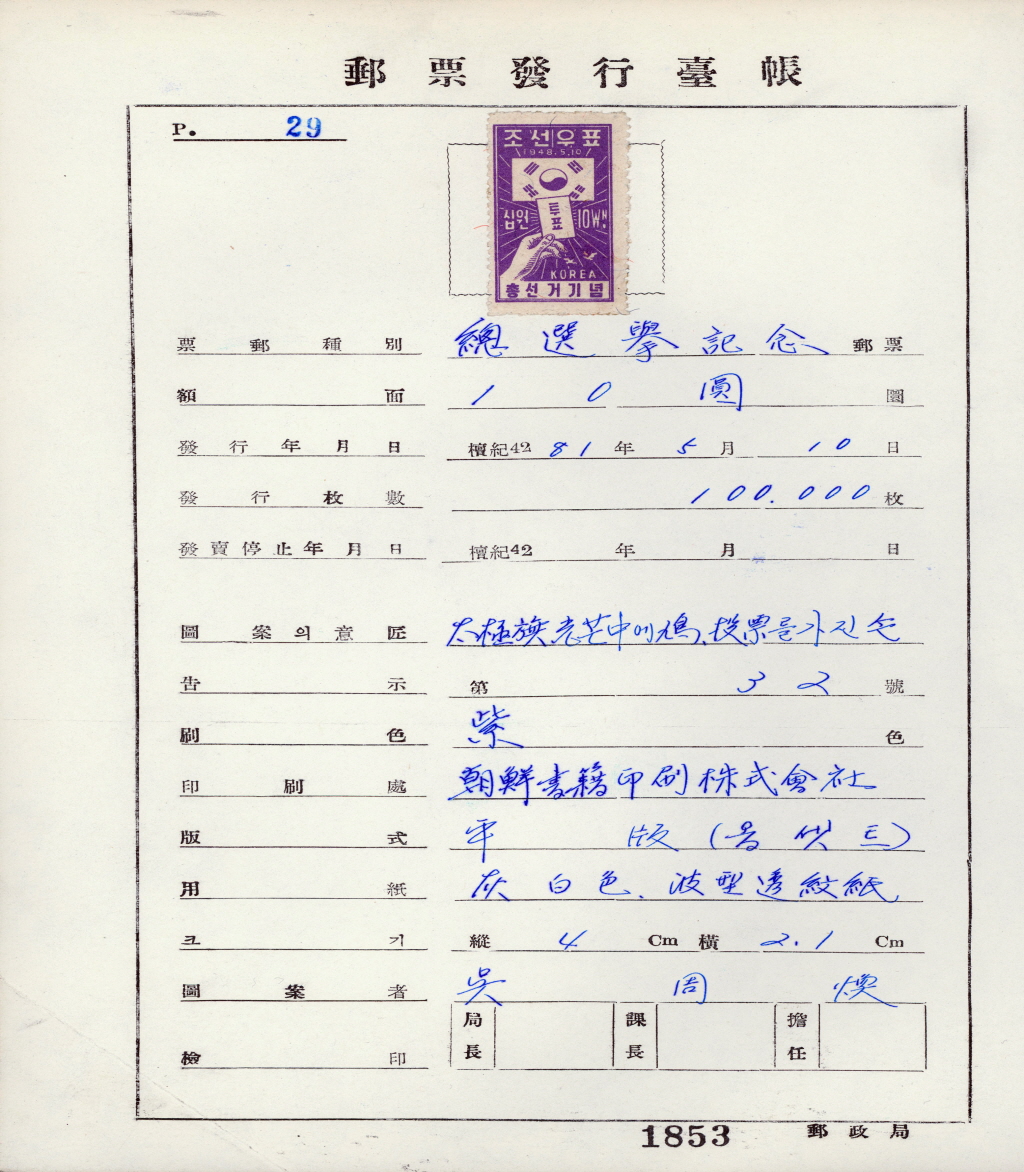 郵票發行臺帳
P. 29
조선우표
1948.5.10
투표
십원 10WN
KOREA
총선거기념
票郵種別 總選擧記念 郵票
額面 10圓 圜
發行年月日 檀紀4281年5月10日
發行枚數 100.000枚
發賣停止年月日 檀紀42 年 月 日
圖案의意匠 太極旗光芒中에鳩、投票를가진손
告示 第32號
刷色 紫色
印刷處 朝鮮書籍印刷株式會社
版式 平版(옵셋트)
用紙 灰白色、波型透紋紙
크기 縱 4 Cm 橫 2.1 Cm
圖案者 吳周煥
檢印 局長 課長 擔任
1853 郵政局